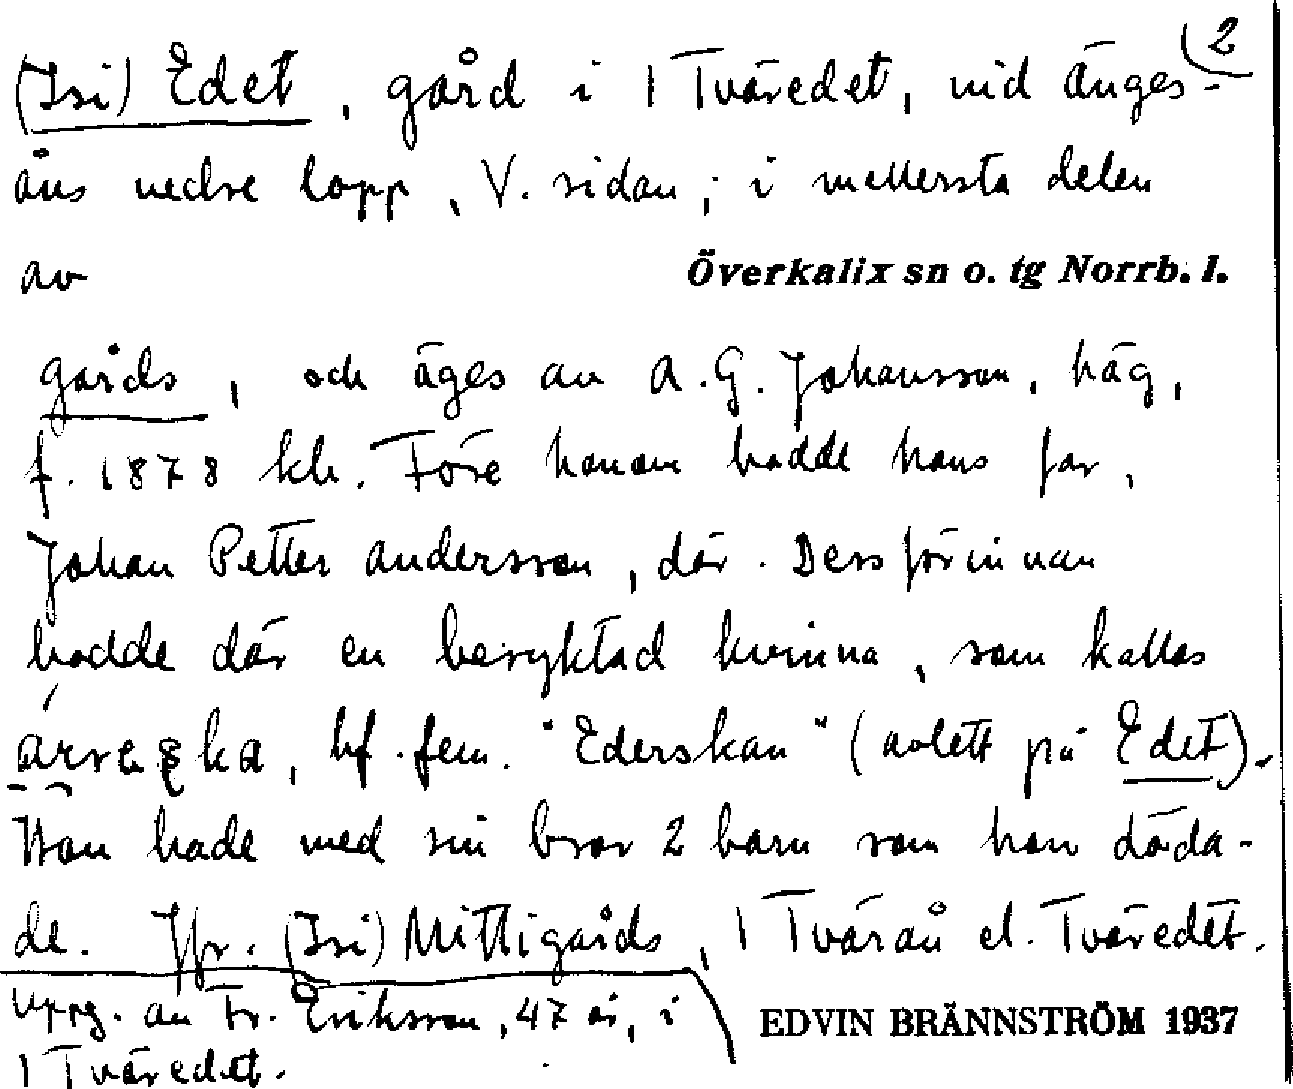 2
(Isi) Edet, gård i 1 Tväredet, vid Änges-
åns nedre lopp, V. sidan; i mellersta delen
av
Överkalix sn o. tg Norrb. l.
gårds, och äges av A. G. Johansson, häg,
f. 1878 kh. Före honom bodde hans far,
Johan Petter Andersson, där. Dessförinnan
bodde där en beryktad kvinna, som kallas
, bf. fem. "Ederskan" (avlett på Edet).
Hon hade med sin bror 2 barn som hon döda-
de. Jfr. (Isi) Mittigårds, 1 Tvärån el. Tväredet.
Uppg. av Fr. Eriksson, 47 år, i
1 Tväredet.
EDVIN BRÄNNSTRÖM 1937